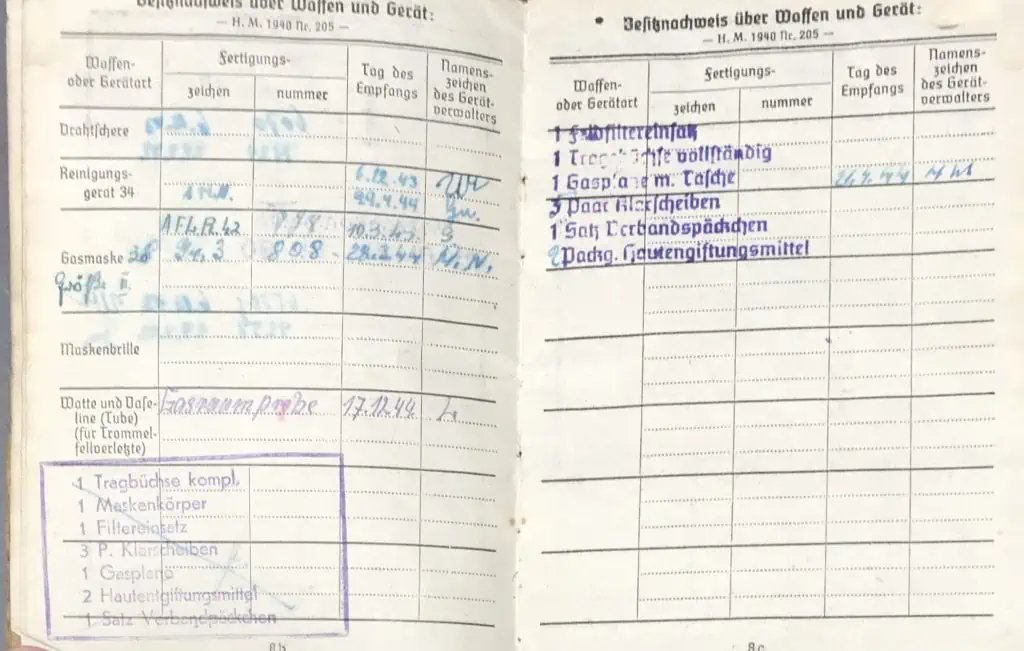 Besitznachweis über Waffen und Gerät:
— H. M. 1940 Nr. 205 —
Waffen-
oder Gerätart
Fertigungs-
zeichen
nummer
Tag des
Empfangs
Namens-
zeichen
des Gerät-
verwalters
Drahtschere
Reinigungs-
gerät 34
6.12.43
Gasmaske 38
Größe II.
AFL.R.42
778
10.3.43
808
28.2.44
N.N.
Maskenbrille
Watte und Vase-
line (Tube)
(für Trommel-
fellverletzte)
Gasraumprobe
17.12.44
1 Tragbüchse kompl.
1 Maskenkörper
1 Filtereinsatz
3 P. Klarscheiben
1 Gasplane
2 Hautentgiftungsmittel
1 Satz Verbandpäckchen
8b
Besitznachweis über Waffen und Gerät:
— H. M. 1940 Nr. 205 —
Waffen-
oder Gerätart
Fertigungs-
zeichen
nummer
Tag des
Empfangs
Namens-
zeichen
des Gerät-
verwalters
1 Feldfiltereinsatz
1 Tragbüchse vollständig
1 Gasplane m. Tasche
3 Paar Klarscheiben
1 Satz Verbandspäckchen
2 Packg. Hautengiftungsmittel
8c